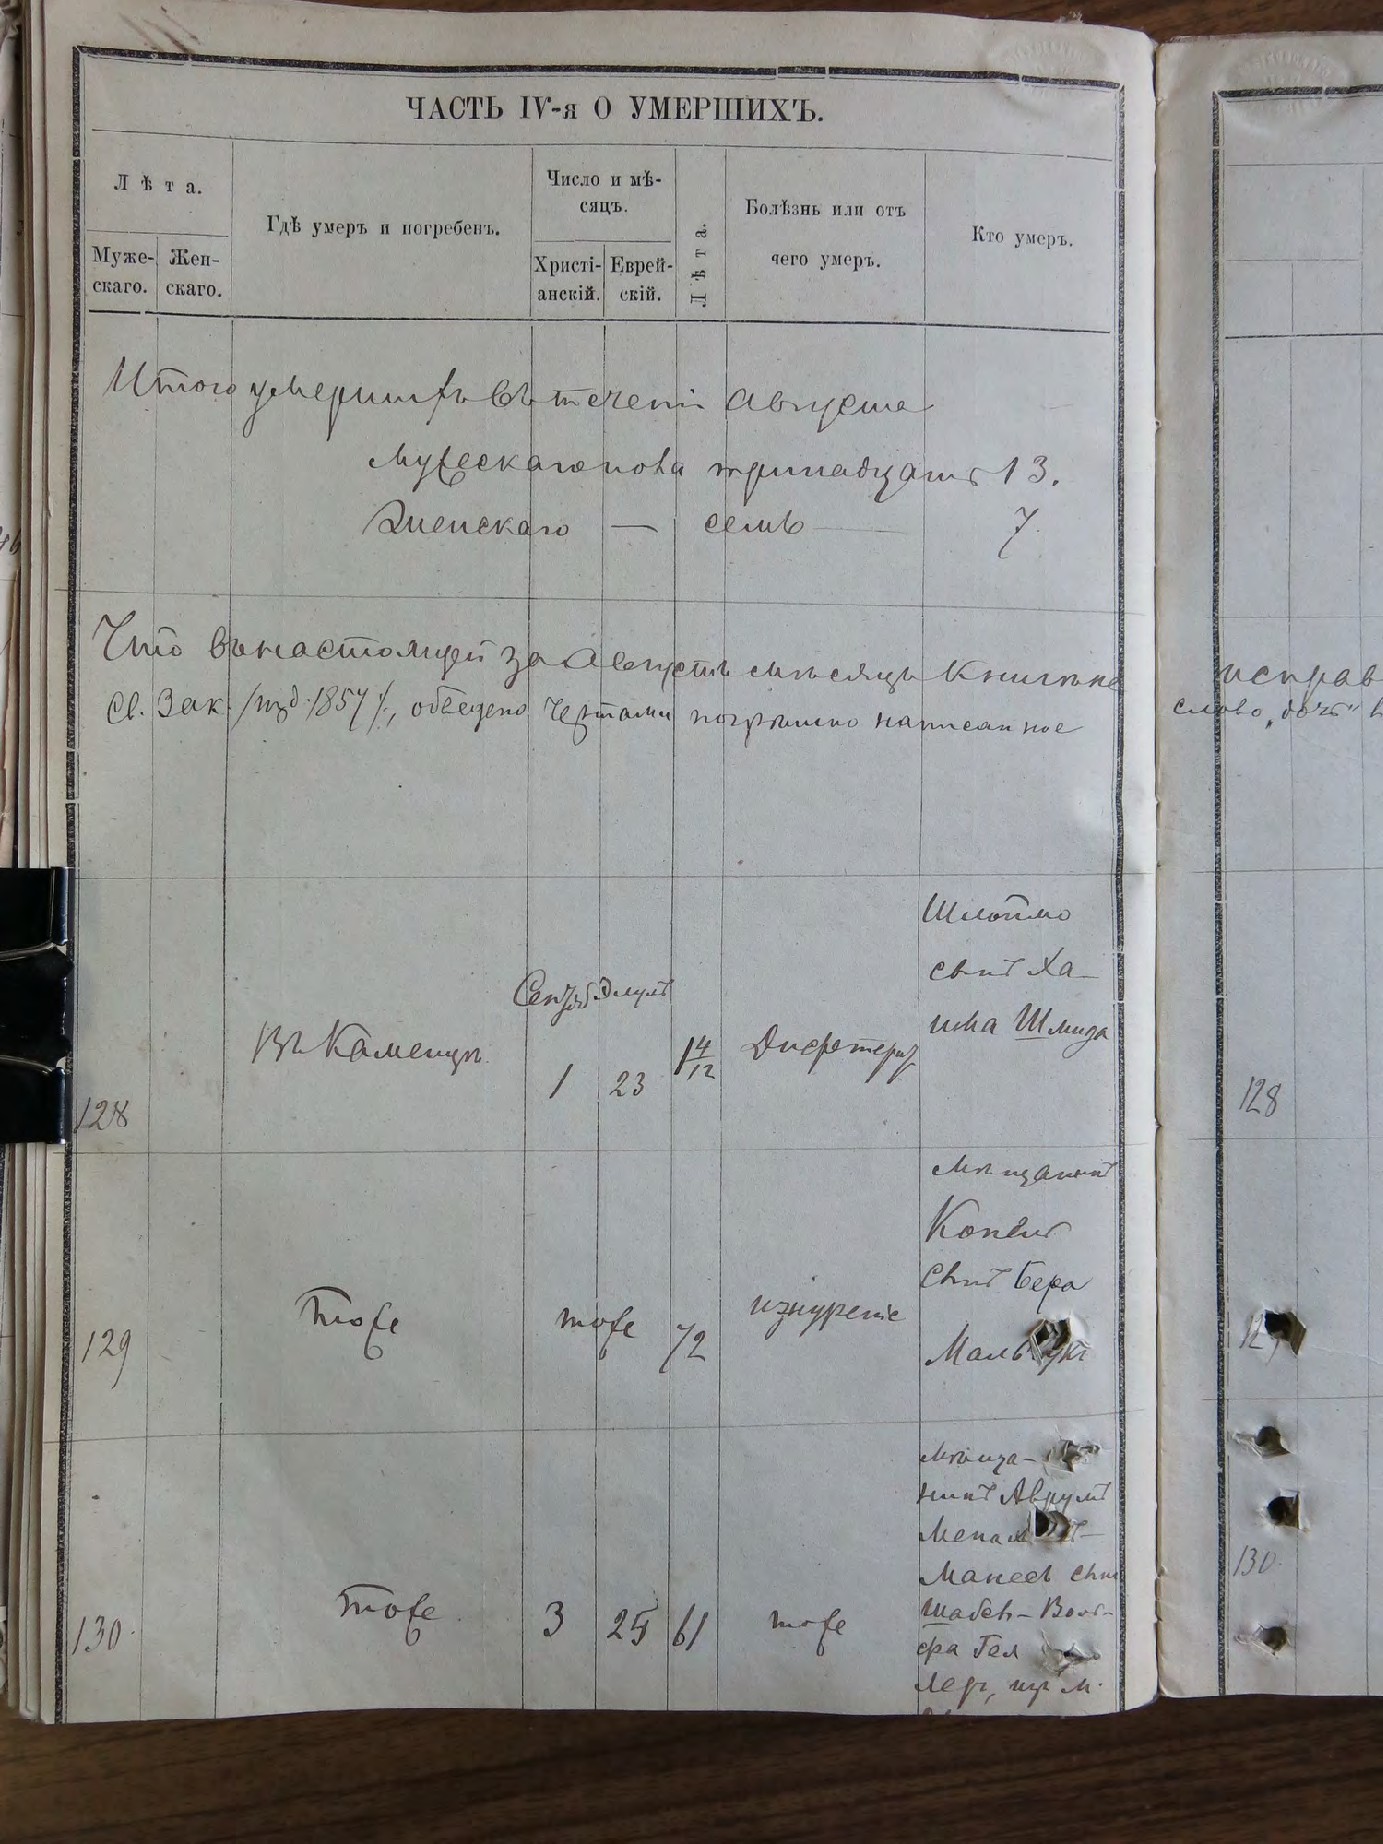 ЧАСТЬ IV-я О УМЕРШИХЪ.
Лѣта.
Муже-скаго.
Жен-скаго.
Гдѣ умеръ и погребенъ.
Число и мѣ-
сяцъ.
Христі-
анскій.
Еврей-
скій.
Лѣта.
Болѣзнь или отъ
чего умеръ.
Кто умеръ.
Итого умершихъ въ теченіи августа
мужескаго пола тринадцать 13.
Женскаго — семь 7
Что въ настоящей за Августъ мѣсяцъ книжке
Св. Зак. /изд. 1857/., обведено чертами погрѣшно написанное
исправ
слово „дочь"
128
Въ Каменцѣ
Сентяб Элулъ
1 23
1 4/12
Дифтеритъ
Шлоймо
сынъ Ха-
има Шмида
128
129
тоже
тоже
72
изнуреніе
мѣщанинъ
Копель
сынъ Бера
129
130.
тоже
3 25
61
тоже
мѣща-
нинъ Аврумъ
сынъ
Шабсъ-Воль-
фа Гел
леръ, изъ м.
130.